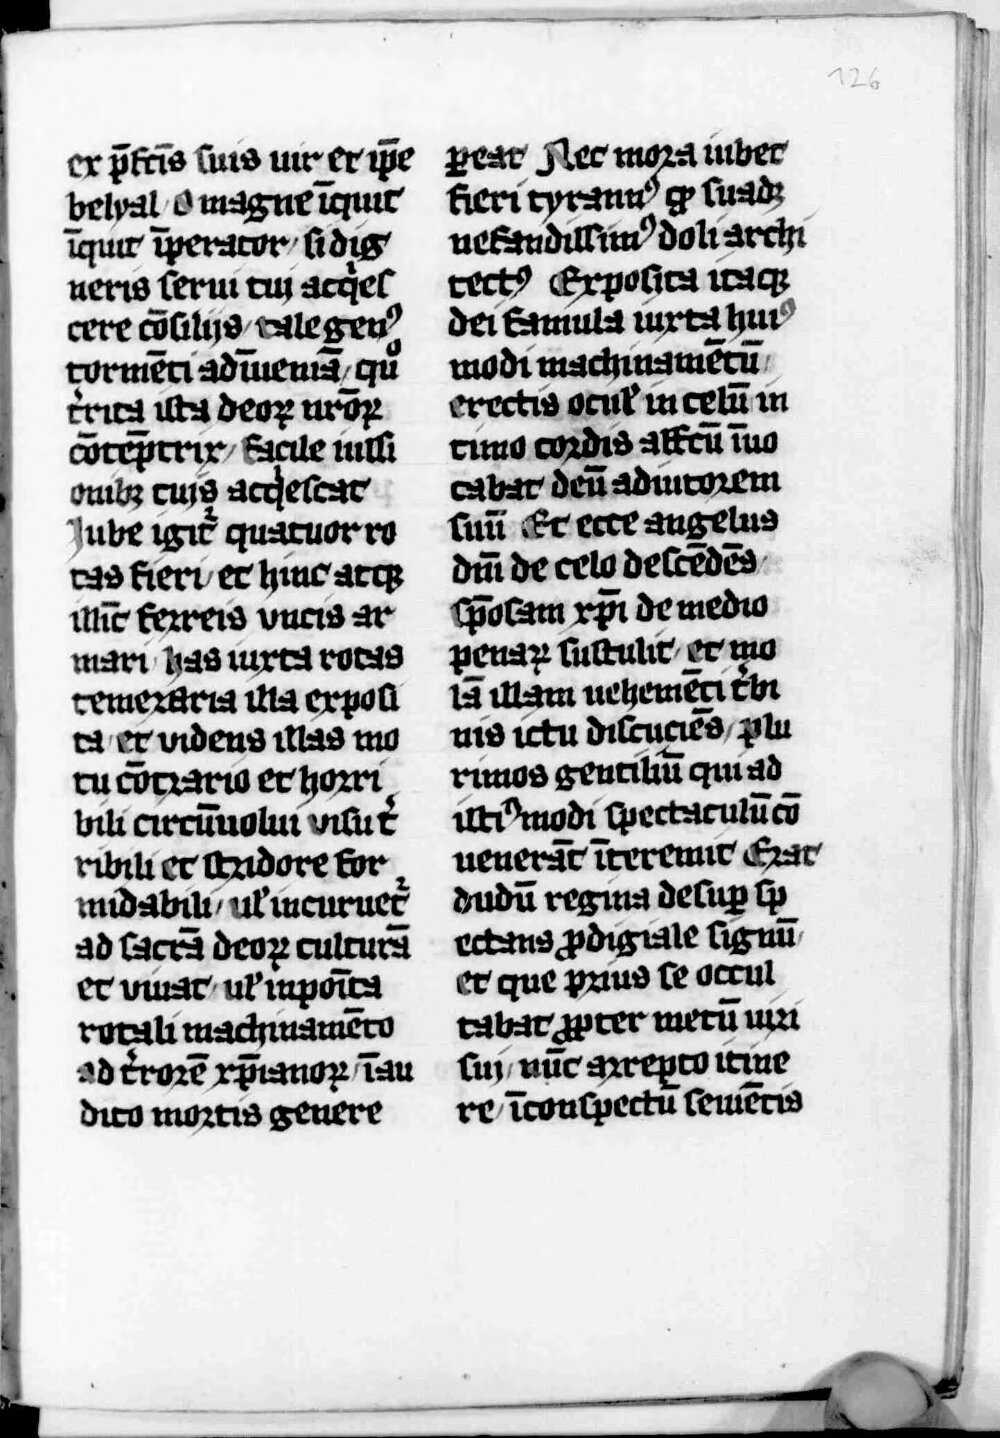 126
ex p̄fc̄is suis uir et ip̄e
belyal / O magne īquit
īquit īperator / si dig
neris serui tui acq̇es
cere cōsilijs / tale genꝰ
tormēti adīueniā / quͦ
ṫrita ista deoꝝ nr̄oꝝ
cōtēptrix / facile iussi
onibꝫ tuis acq̇escat
Jube igit᷑ quatuor ro
tas fieri / et hinc atqꝫ
illīc ferreis vncis ar
mari / has iuxta rotas
temeraria illa exposi
ta / et videns illas mo
tu cōtrario et horri
bili circūuolui visu ṫ
ribili et stridore for
midabili / ul̓ incuruet᷑
ad sacrā deoꝝ culturā
et viuat / ul̓ inpoīta
rotali machinamēto
ad ṫrorē xp̄ianoꝝ / īau
dito mortis genere
ꝑeat Nec mora iubet
fieri tyrannꝰ qꝫ suadꝫ
nefandissimꝰ doli archi
tectꝰ Exposita itaqꝫ
dei famula iuxta huiꝰ
modi machinamētū /
erectis ocul̓ in celū in
timo cordis affc̄u īuo
cabat deū adiutorem
suū Et ecce angelus
dn̄i de celo descēdēs /
sp̄osam xp̄i de medio
penaꝝ sustulit / et mo
lā illam uehemēti ṫbi
nis ictu discuciēs / plu
rimos gentiliū qui ad
istiꝰmodi spectaculū cō
uenerāt īteremit Erat
dudū regina desuꝑ sp
ectans ꝓdigiale signū /
et que prius se occul
tabat ꝓpter metū uiri
sui / nūc arrepto itine
re / īconspectū seuiētis